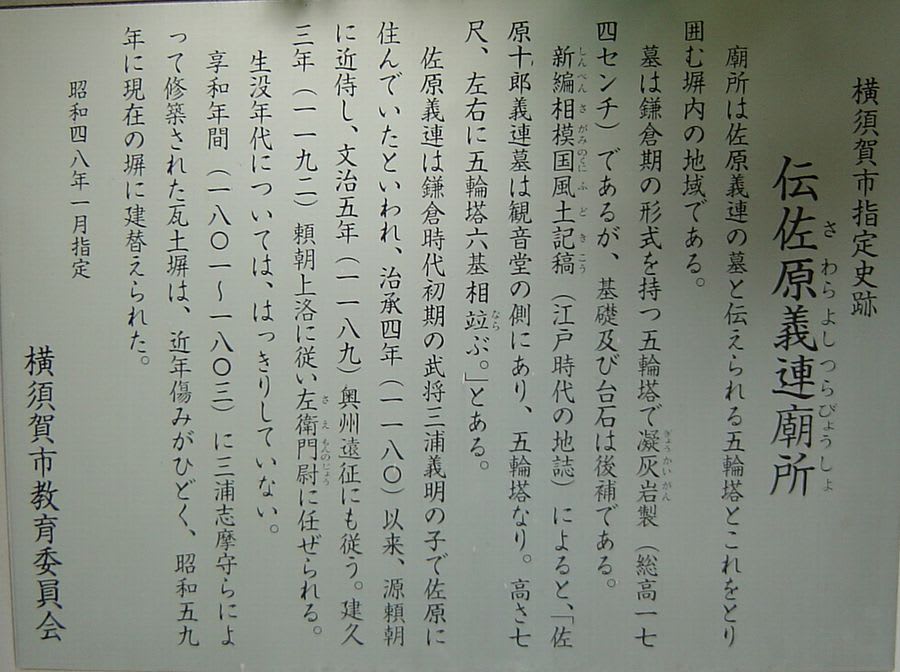 横須賀市指定史跡
伝佐原義連廟所
さわらよしつらびょうしょ
廟所は佐原義連の墓と伝えられる五輪塔とこれをとり
囲む塀内の地域である。
墓は鎌倉期の形式を持つ五輪塔で凝灰岩製（総高一七
ぎょうかいがん
四センチ）であるが、基礎及び台石は後補である。
新編相模国風土記稿（江戸時代の地誌）によると、「佐
しんぺんさがみのくにふどきこう
原十郎義連墓は観音堂の側にあり、五輪塔なり。高さ七
尺、左右に五輪塔六基相竝ぶ。」とある。
なら
佐原義連は鎌倉時代初期の武将三浦義明の子で佐原に
住んでいたといわれ、治承四年（一一八〇）以来、源頼朝
に近侍し、文治五年（一一八九）奥州遠征にも従う。建久
三年（一一九二）頼朝上洛に従い左衛門尉に任ぜられる。
さえもんのじょう
生没年代については、はっきりしていない。
享和年間（一八〇一～一八〇三）に三浦志摩守らによ
って修築された瓦土塀は、近年傷みがひどく、昭和五九
年に現在の塀に建替えられた。
昭和四八年一月指定
横須賀市教育委員会